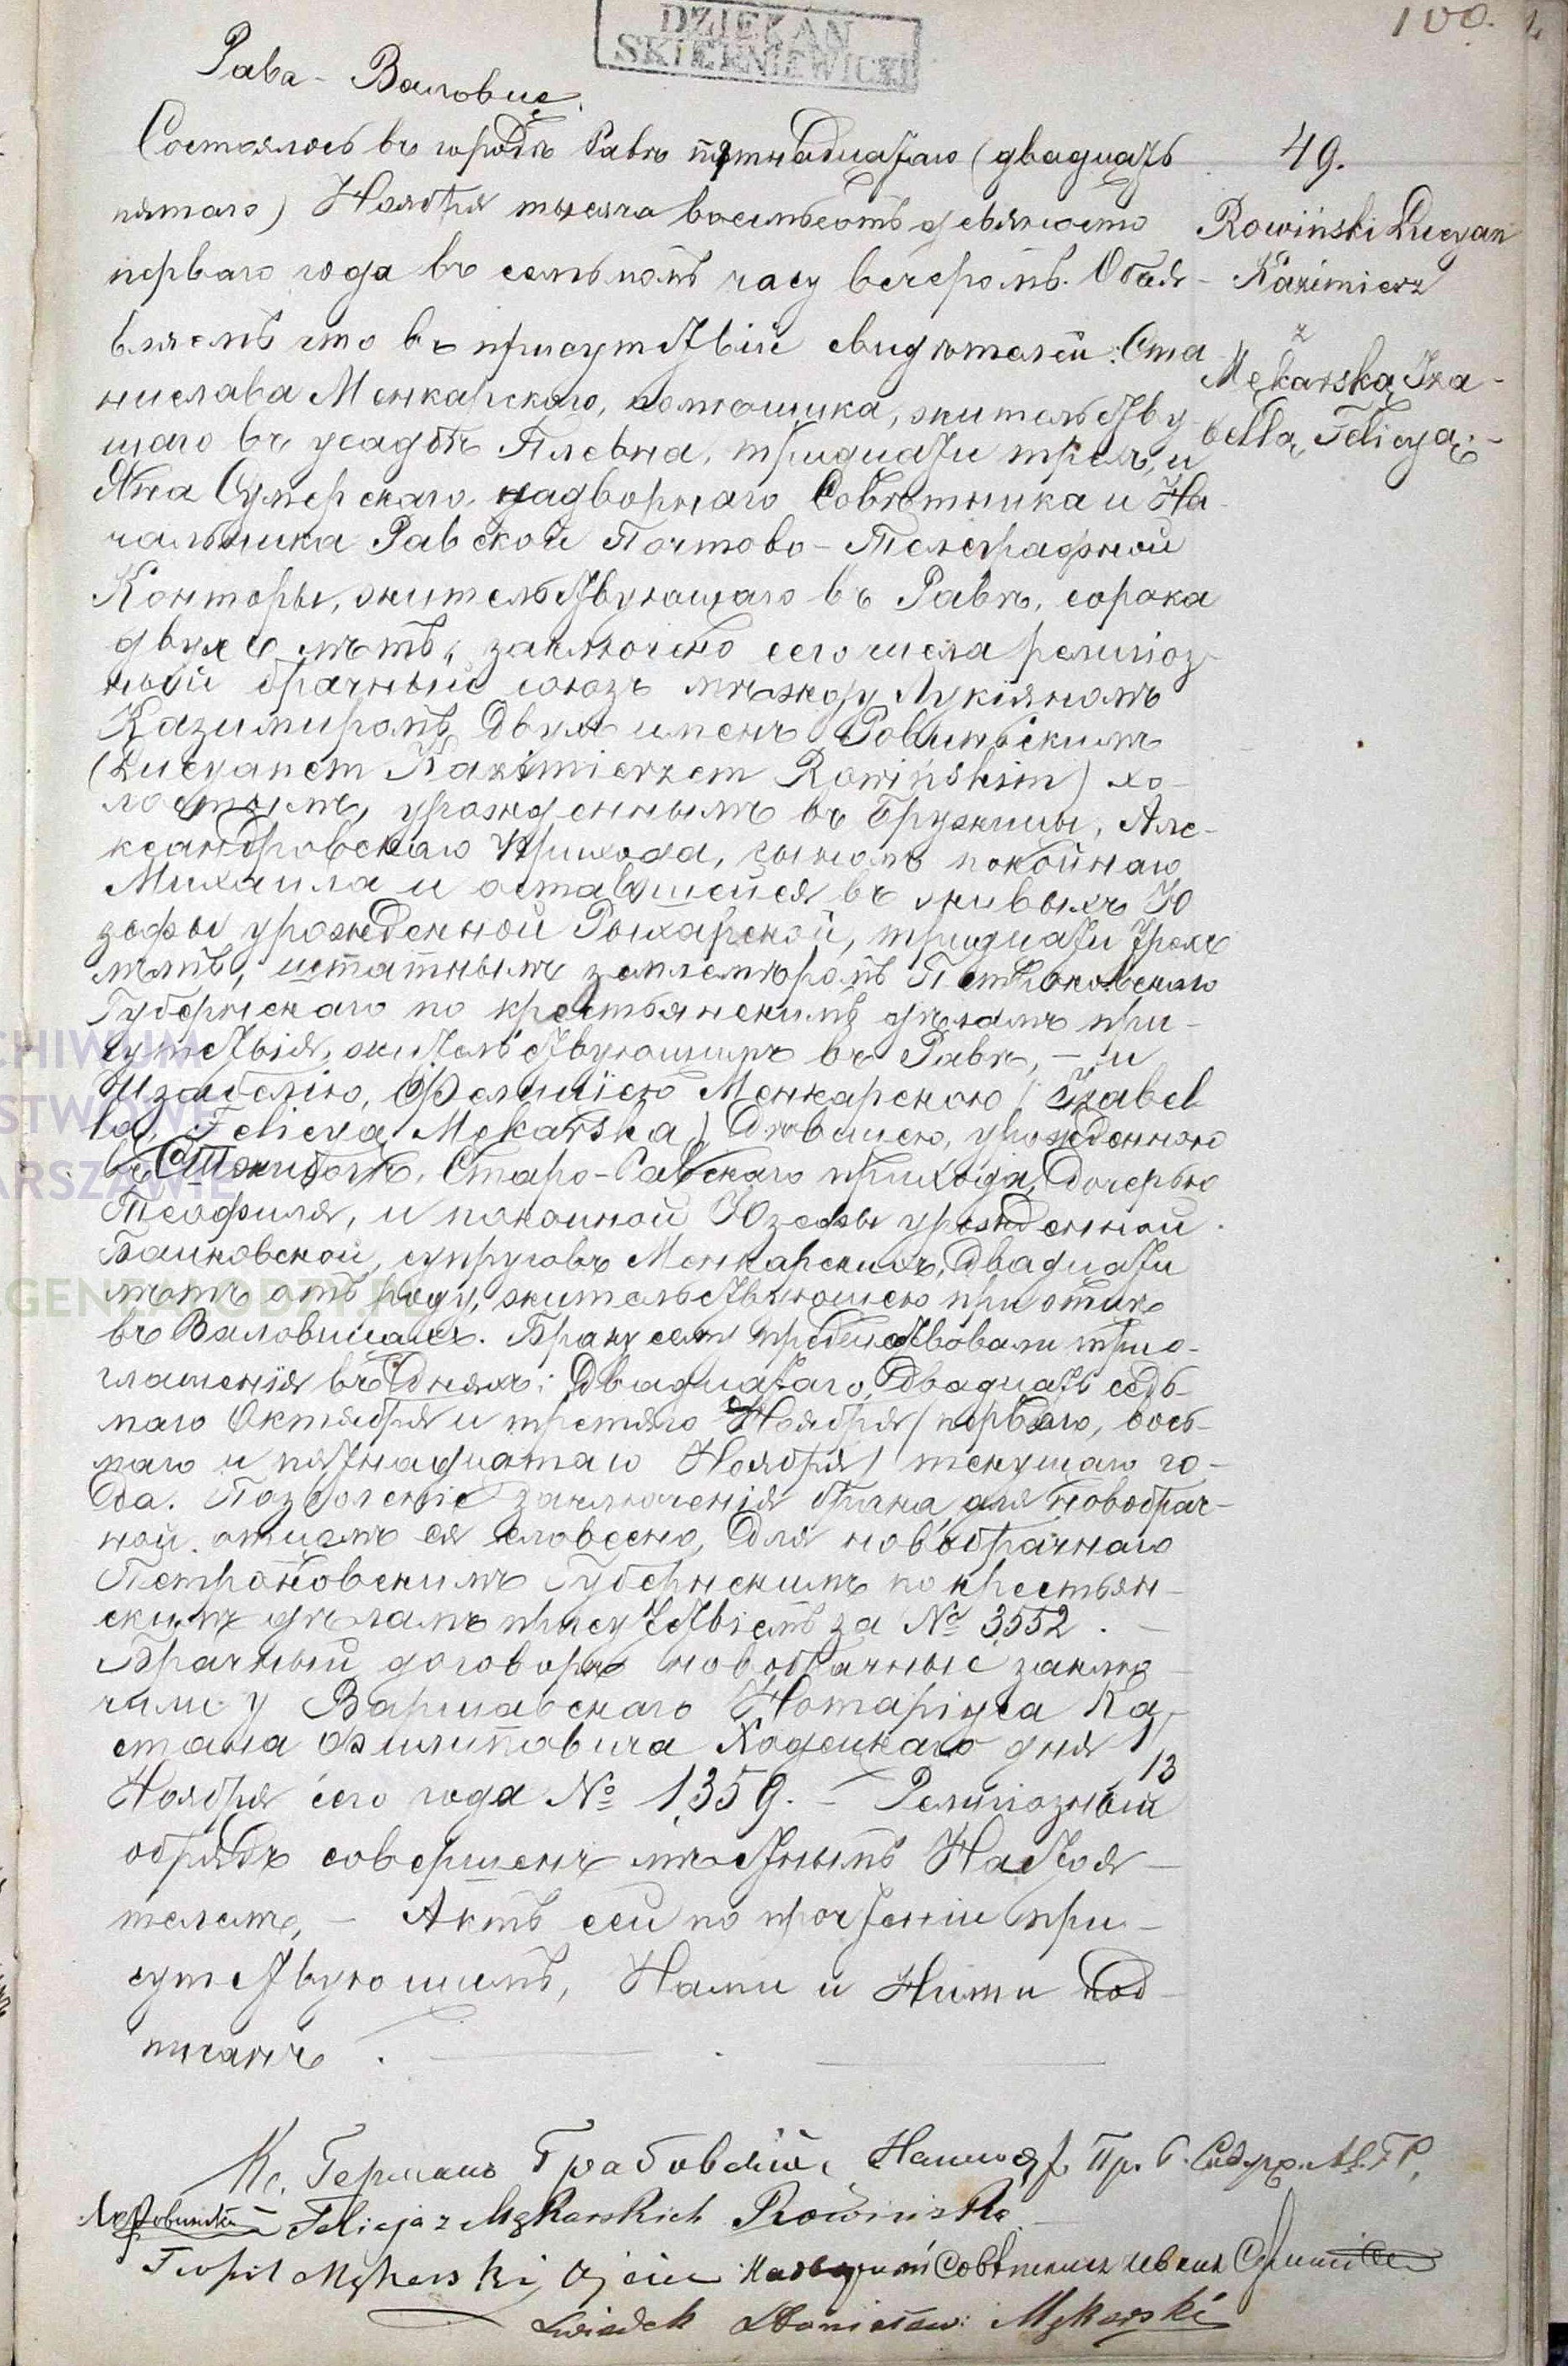 DZIEKAN
SKIERNIEWICKI
100.
Рава - Валовице.
49.
Rowiński Lucyan
Kazimierz
z
Mękarską Iza-
bellą, Felicyą.-
Состоялось въ городѣ Равѣ пятнадцатаго (двадцать
пятаго) Ноября тысяча восемьсотъ девяносто
перваго года въ семьномъ часу вечеромъ. Объя-
вляемъ что въ присутствіи свидѣтелей: Ста
нислава Менкарскаго, помѣщика, жительству-
щаго въ усадьбѣ Плевна, тридцати трехъ, и
Яна надворнаго Совѣтника и На-
чальника Равской Почтово-Телеграфной
Конторы, жительствующаго въ Равѣ, сорока
двухъ лѣтъ, заключено сего числа религіоз-
ный брачный союзъ между Лукіяномъ
Казимиромъ двухъ именъ Ровинскимъ
(Lucyanem Kazimierzem Rowińskim) хо-
лостымъ, урожденнымъ въ Бружицы, Але-
ксандровскаго прихода, сыномъ покойнаго
Михаила и оставшейся въ живыхъ Ю
зефы урожденной Рыхарской, тридцати трехъ
лѣтъ, штатнымъ землемѣромъ Петроковскаго
Губернскаго по крестьянскимъ дѣламъ при-
сутствія, жительствующимъ въ Равѣ, - и
Изабеллою, Фелиціею Менкарскою (Izabel
la, Felicya Mękarska) дѣвицею, урожденною
въ Старо-Равскаго прихода, дочерью
Теофиля, и покойной Юзефы урожденной
Банковской, супруговъ Менкарскихъ, двадцати
лѣтъ отъ роду, жительствующею при отцѣ
въ Валовицахъ. Браку сему предшествовали три о-
глашенія въ дняхъ: двадцатаго, двадцать седь-
маго Октября и третяго Ноября (перваго, вось-
маго и пятнадцатаго Ноября) текущаго го-
да. Позволеніе заключенія брака для новобрач-
ной отцемъ ея словесно, для новобрачнаго
Петроковскимъ Губернскимъ по крестьян-
скимъ дѣламъ присутствіемъ за № 3552. -
Брачный договоръ новобрачные заклю-
чили у Варшавскаго Нотаріуса Ка
етана Филиповича Ходецкаго дня 1/13
Ноября сего года № 1359. - Религіозный
обрядъ совершенъ мѣстнымъ Настоя-
телемъ, - Актъ сей по прочтеніи при-
сутствующимъ, Нами и Ними под-
писанъ.
Кс. Германъ Грабовскій, Настоят. Пр. С.
Felicja z Mękarskich Rowińska
Teofil Mękarski Ojciec Надворный Совѣтникъ
Świadek Stanisław Mękarski